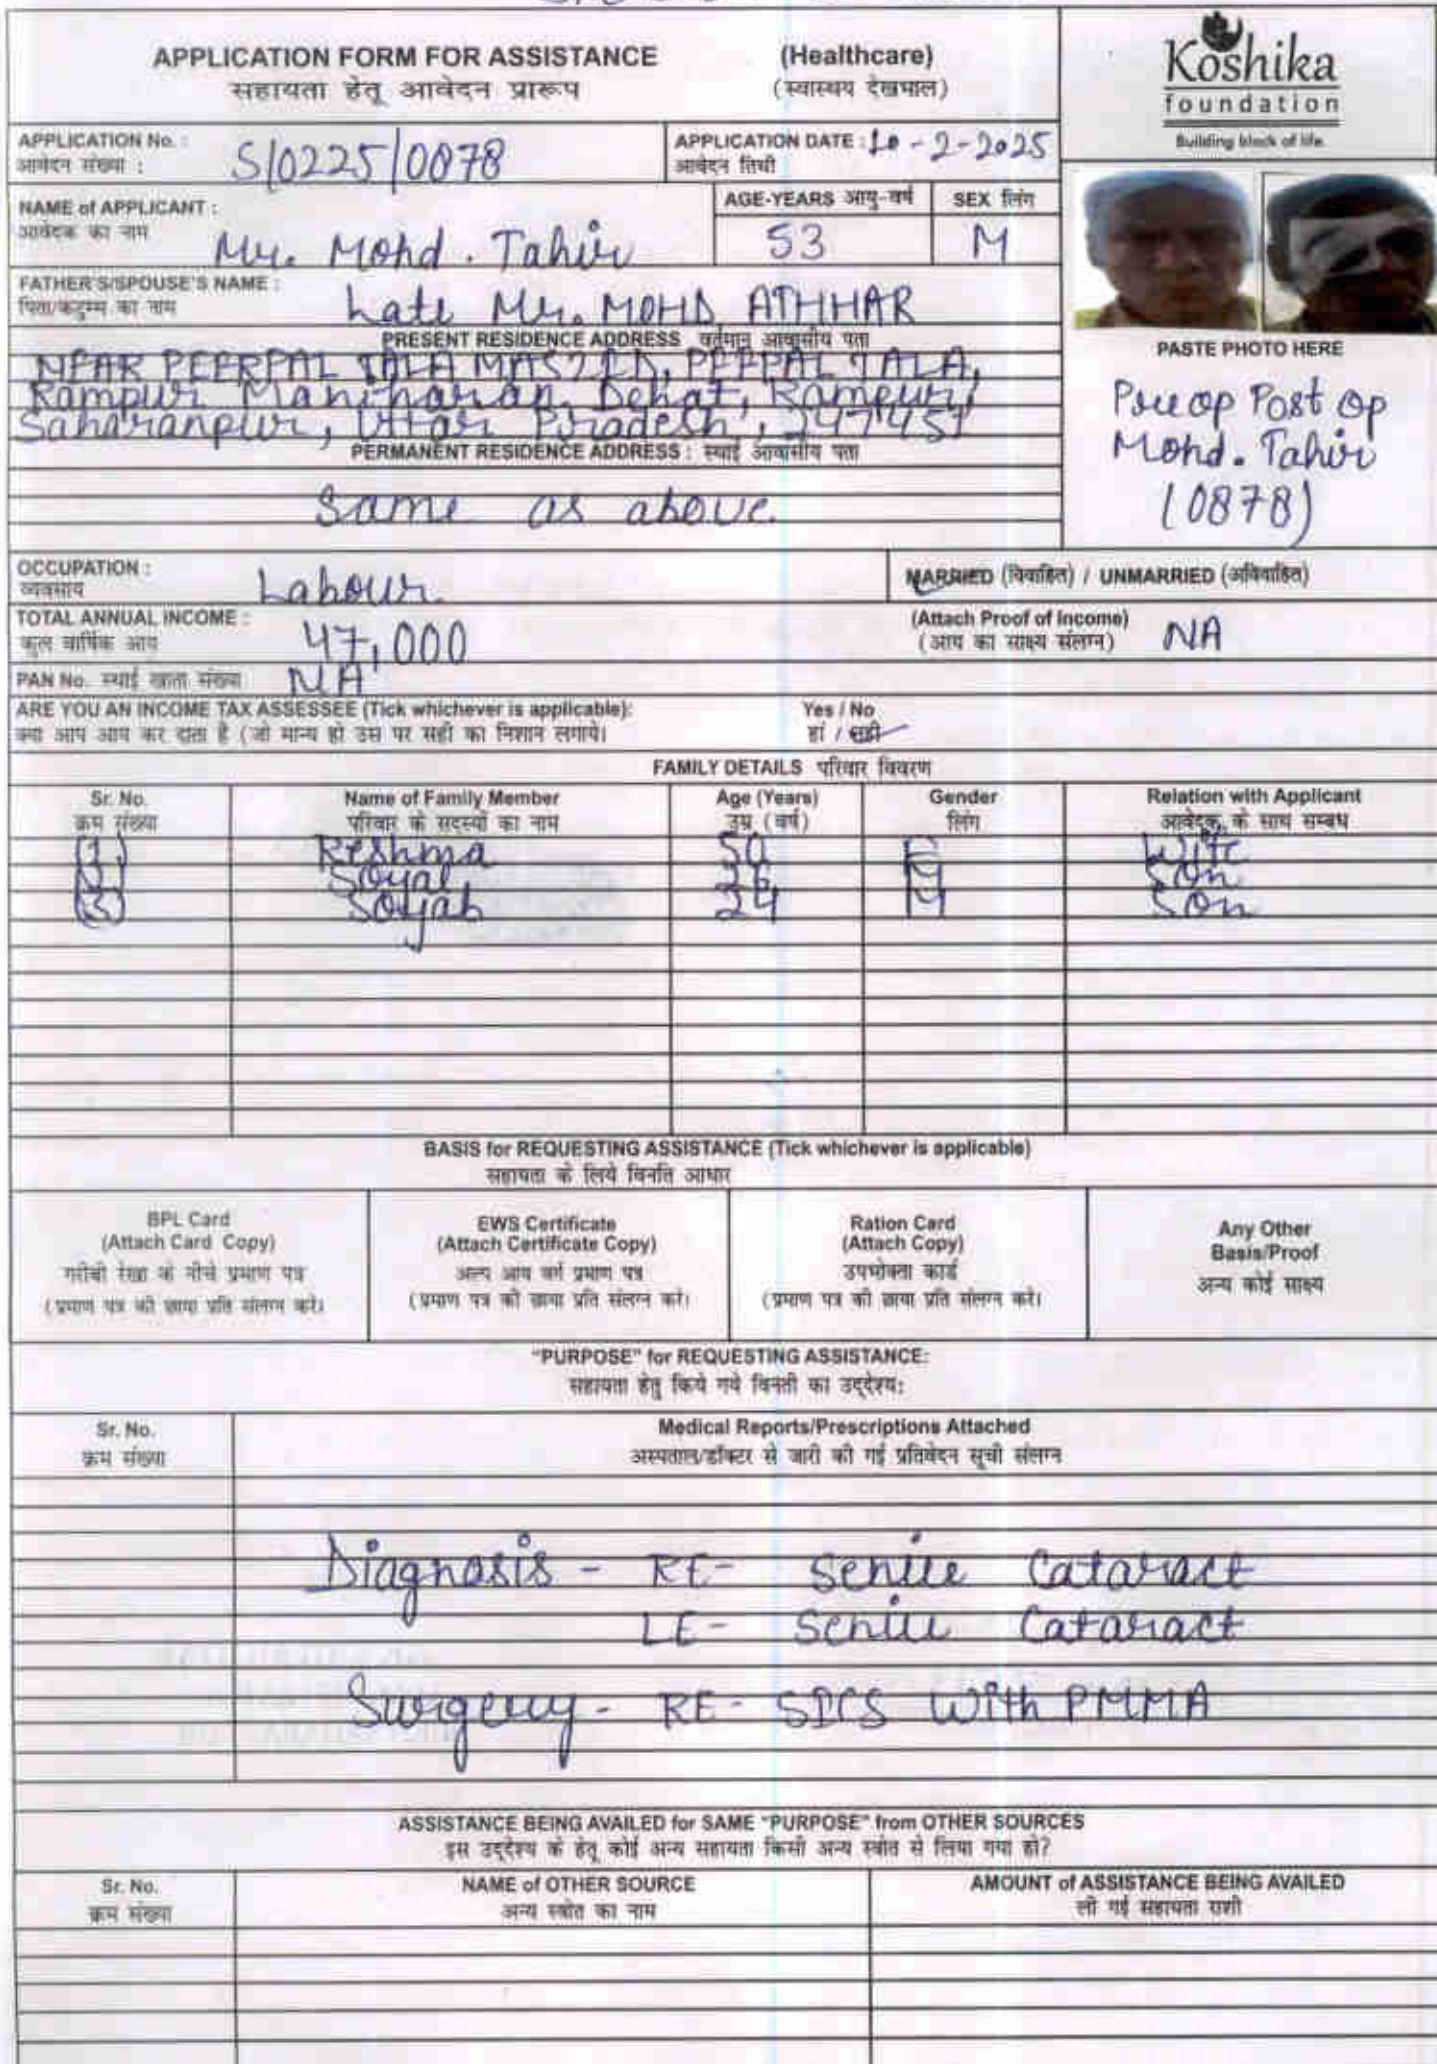 APPLICATION FORM FOR ASSISTANCE (Healthcare)
सहायता हेतू आवेदन प्रारूप (स्वास्थय देखभाल)
Koshika
foundation
Building block of life.
APPLICATION No. : S/0225/0878
आवेदन संख्या :
APPLICATION DATE : 10-2-2025
आवेदन तिथी
NAME of APPLICANT : Mr. Mohd. Tahir
आवेदक का नाम
AGE-YEARS आयु-वर्ष 53
SEX लिंग M
FATHER'S/SPOUSE'S NAME : Late Mr. MOHD ATHHAR
पिता/कटुम्म का नाम
PRESENT RESIDENCE ADDRESS वर्तमान आवासीय पता
NEAR PEERPAL TALA MASJID, PEEPAL TALA,
Rampur Maniharan, Dehat, Rampur,
Saharanpur, Uttar Pradesh, 247451
PERMANENT RESIDENCE ADDRESS : स्थाई आवासीय पता
Same as above.
PASTE PHOTO HERE
Pre op Post op
Mohd. Tahir
(0878)
OCCUPATION : Labour
व्यवसाय
MARRIED (विवाहित) / UNMARRIED (अविवाहित)
TOTAL ANNUAL INCOME : 47,000
कुल वार्षिक आय
(Attach Proof of Income) NA
(आय का साक्ष्य संलग्न)
PAN No. स्थाई खाता संख्या NA
ARE YOU AN INCOME TAX ASSESSEE (Tick whichever is applicable): Yes / No
क्या आप आय कर दाता है (जो मान्य हो उस पर सही का निशान लगाये। हां /
FAMILY DETAILS परिवार विवरण
Sr. No. Name of Family Member Age (Years) Gender Relation with Applicant
क्रम संख्या परिवार के सदस्यों का नाम उम्र (वर्ष) लिंग आवेदक के साथ सम्बंध
(1) Reshma 50 F Wife
(2) Soyal 26 M Son
(3) Soyab 24 M Son
BASIS for REQUESTING ASSISTANCE (Tick whichever is applicable)
सहायता के लिये विनति आधार
BPL Card
(Attach Card Copy)
गरीबी रेखा के नीचे प्रमाण पत्र
(प्रमाण पत्र की छाया प्रति संलग्न करे।
EWS Certificate
(Attach Certificate Copy)
अल्प आय वर्ग प्रमाण पत्र
(प्रमाण पत्र की छाया प्रति संलग्न करे।
Ration Card
(Attach Copy)
उपभोक्ता कार्ड
(प्रमाण पत्र की छाया प्रति संलग्न करे।
Any Other
Basis/Proof
अन्य कोई साक्ष्य
"PURPOSE" for REQUESTING ASSISTANCE:
सहायता हेतु किये गये विनती का उद्देश्य:
Sr. No. Medical Reports/Prescriptions Attached
क्रम संख्या अस्पताल/डॉक्टर से जारी की गई प्रतिवेदन सूची संलग्न
Diagnosis - RE- Senile Cataract
LE- Senile Cataract
Surgery - RE- SICS With PMMA
ASSISTANCE BEING AVAILED for SAME "PURPOSE" from OTHER SOURCES
इस उद्देश्य के हेतू कोई अन्य सहायता किसी अन्य स्त्रोत से लिया गया हो?
Sr. No. NAME of OTHER SOURCE AMOUNT of ASSISTANCE BEING AVAILED
क्रम संख्या अन्य स्त्रोत का नाम ली गई सहायता राशी